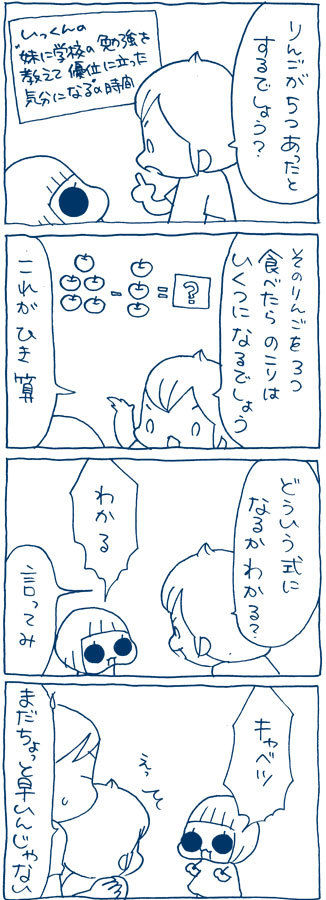 いっくんの
"妹に学校の勉強を
教えて優位に立った
気分になる"の時間
りんごが5つあったと
するでしょう?
そのりんごを3つ
食べたらのこりは
いくつになるでしょう
- = ?
これがひき算
どういう式に
なるかわかる?
わかる
言ってみ
キャベツ
えっ
まだちょっと早いんじゃない